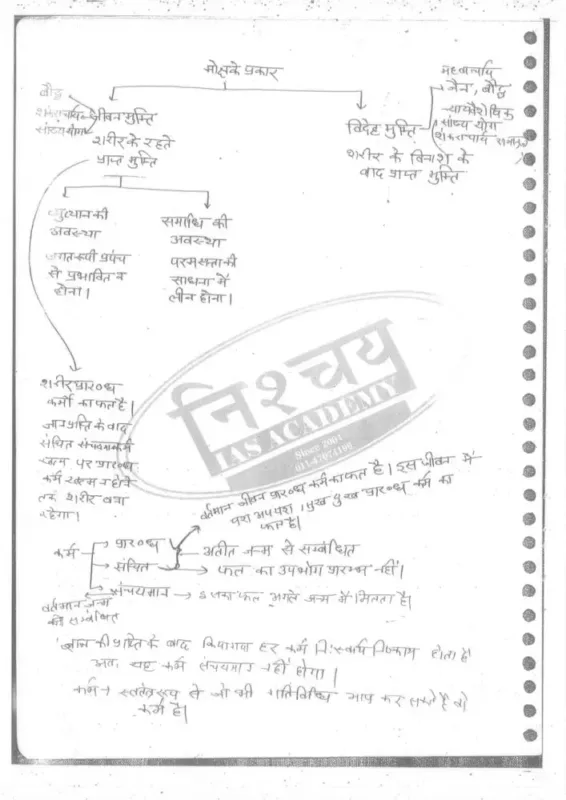 मोक्ष के प्रकार
बौद्ध
शंकराचार्य
सांख्य योग
जीवन मुक्ति
शरीर के रहते
प्राप्त मुक्ति
जैन, बौद्ध
सांख्य योग
शंकराचार्य
विदेह मुक्ति
शरीर के विनाश के
बाद प्राप्त मुक्ति
व्युत्थान की
अवस्था
जगत रूपी प्रपंच
से प्रभावित न
होना।
समाधि की
अवस्था
परमसत्ता की
साधना में
लीन होना।
शरीर प्रारब्ध
कर्मों का फल है।
ज्ञान प्राप्ति के बाद
संचित
पर प्रारब्ध
कर्म खत्म न होने
तक शरीर बना
रहेगा।
निश्चय
IAS ACADEMY
Since 2001
वर्तमान जीवन प्रारब्ध कर्म का फल है। इस जीवन में
यश अपयश, सुख दुःख प्रारब्ध कर्म का
फल है।
कर्म
प्रारब्ध
संचित
संचयमान
अतीत जन्म से सम्बंधित
फल का उपभोग प्रारम्भ नहीं।
इसका फल अगले जन्म में मिलता है।
वर्तमान जन्म
से सम्बंधित
ज्ञान की प्राप्ति के बाद किया गया हर कर्म निःस्वार्थ निष्काम होता है
अतः यह कर्म संचयमान नहीं होगा।
कर्म → स्वतंत्र रूप से जो भी गतिविधि आप कर सकते है वो
कर्म है।